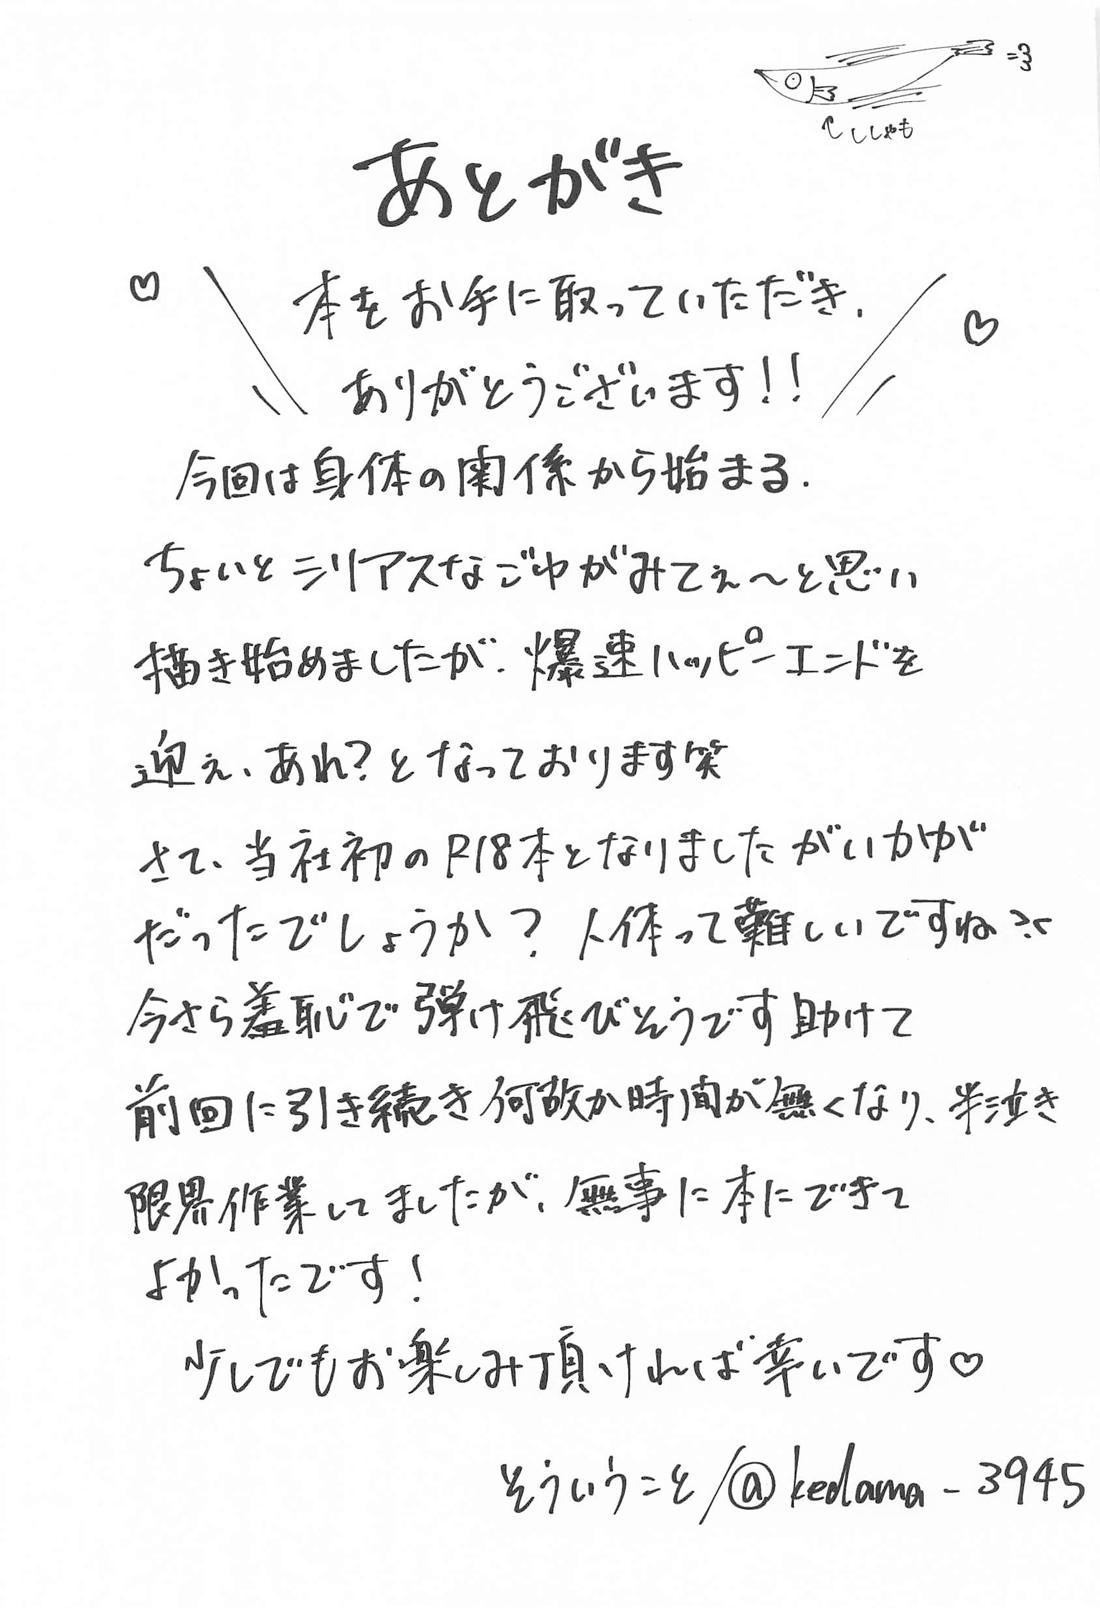 ↑ししゃも
あとがき
♡ 本をお手に取っていただき、 ♡
ありがとうございます!!
今回は身体の関係から始まる、
ちょいとシリアスなごゆがみてぇ〜と思い
描き始めましたが、爆速ハッピーエンドを
迎え、あれ?となっております笑
さて、当社初のR18本となりましたがいかが
だったでしょうか?人体って難しいですね
今さら羞恥で弾け飛びそうです助けて
前回に引き続き何故か時間が無くなり、半泣き
限界作業してましたが、無事に本にできて
よかったです!
少しでもお楽しみ頂ければ幸いです♡
そういうこと/@kedama_3945